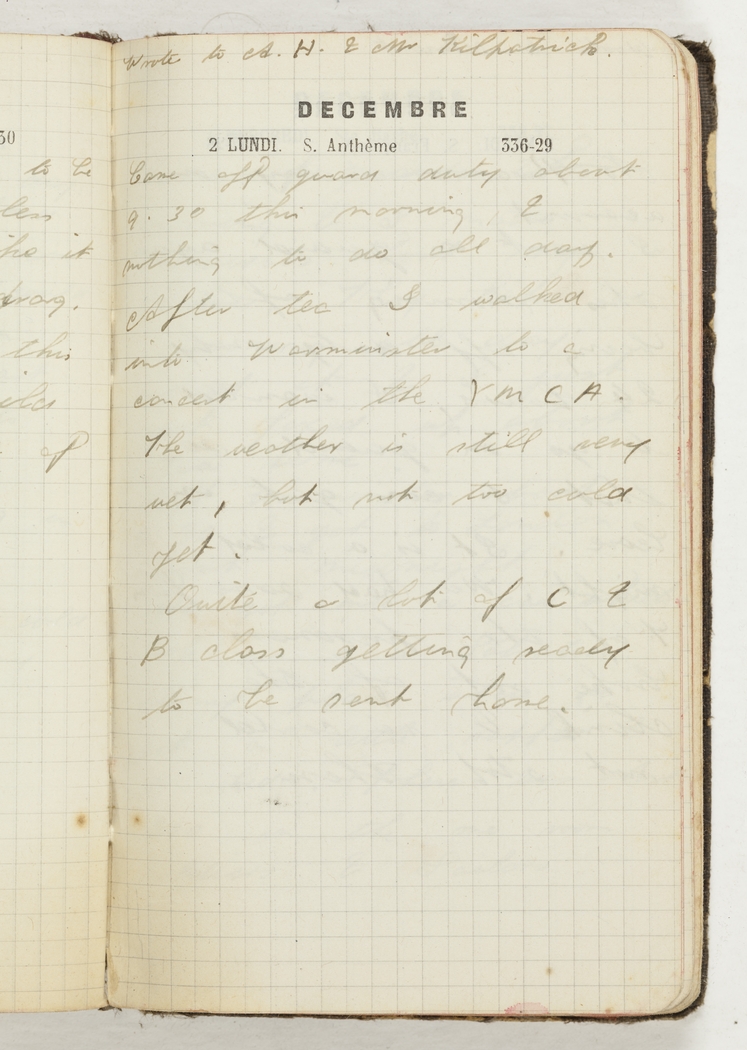 50
to be
less
it
this
of
Wrote to A. H. & Mr Kilpatrick.
DECEMBRE
2 LUNDI. S. Anthème 336-29
Came off guard duty about
9.30 this morning, &
nothing to do all day.
After tea I walked
into Warminster to a
concert in the Y M C A.
The weather is still very
wet, but not too cold
yet.
Quite a lot of C &
B class getting ready
to be sent home.